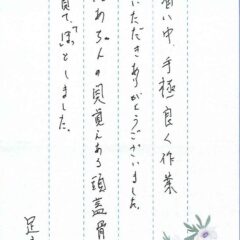 い中、手極良く作業
いただきありがとうございました。
あちゃんの見覚えある頭蓋骨
見て、ほっとしました。